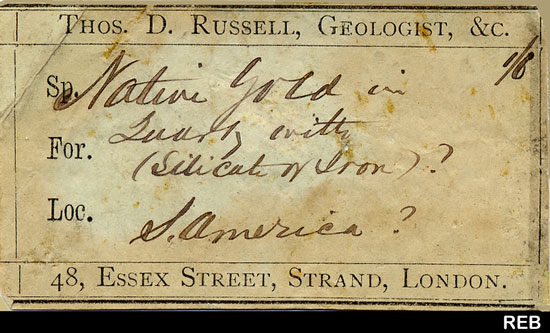 Thos. D. Russell, Geologist, &c.
1/6
Sp. Native Gold in
For. Quartz with
(Silicate of Iron)?
Loc. S. America?
48, Essex Street, Strand, London.
REB